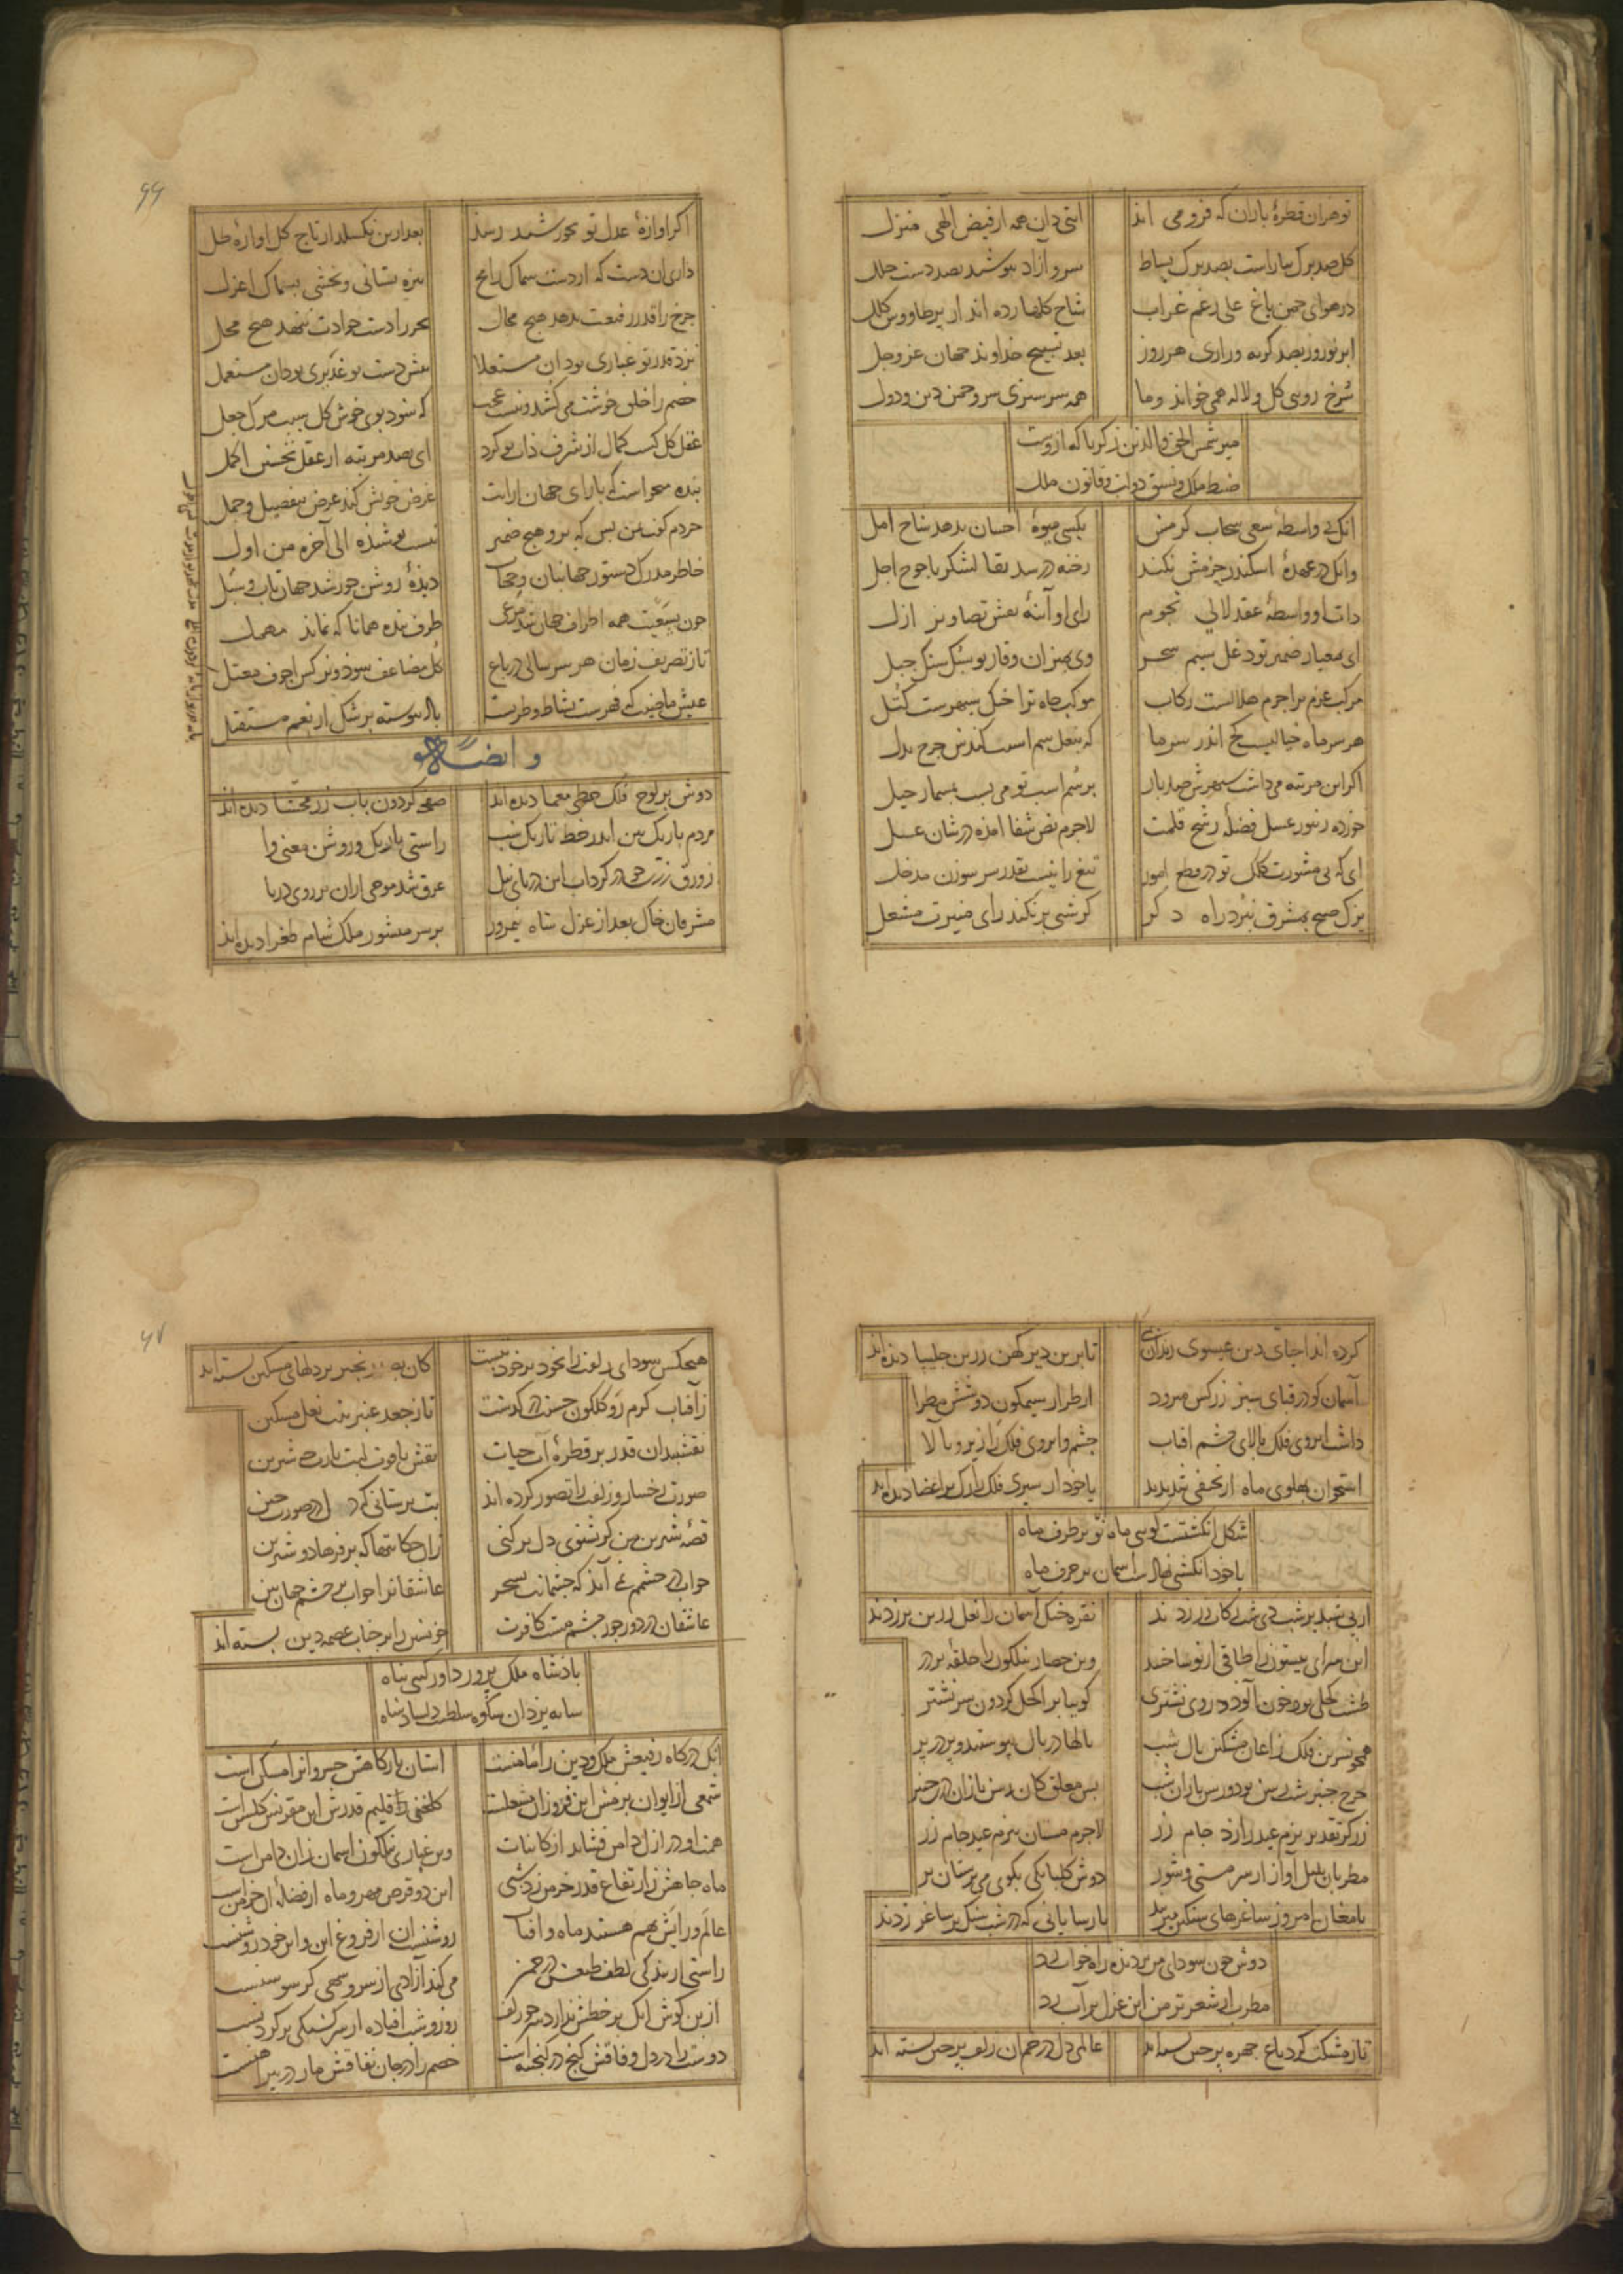 تو هر آن قطرهٔ باران که فرو می آید آیتی دان همه از فیض الهی منزل
کل صد برک بیاراست بصد برک بساط سرو آزاد بپوشید بصد دست حلل
در هوای چمن باغ علی رغم غراب شاخ کلها زده اند از پر طاووس کلل
ابر نوروز بصد کریه و زاری هر روز بعد تسبیح خداوند جهان عز وجل
سرخ رویی کل و لاله همی خواند و ما همه سر سبزی سرو چمن دین و دول
میر شمس الحق والدین زکریا که ازوست
ضبط ملک و نسق دولت و قانون ملل
آنک بی واسطهٔ سعی سحاب کرمش یکسی میوهٔ احسان ندهد شاخ امل
وانک در عهدهٔ اسکندر حزمش نکند رخنه در سد بقا لشکر یاجوج اجل
ذات او واسطهٔ عقد لالی نجوم رای او آینهٔ نقش تصاویر ازل
ای بمعیار ضمیر تو دغل سیم سحر وی بمیزان وقار تو سبک سنک جبل
مرکب عزم ترا جرم هلالست رکاب موکب جاه ترا خیل سپهرست کتل
هر سر ماه خیالیست کج اندر سر ما که بنعل سم اسبت کندش چرخ بدل
اکر این مرتبه می داشت سپهرش صد بار بر سم اسب تو می بست بمسمار حیل
خورده زنبور عسل فضلهٔ رشح قلمت لاجرم نص شفا آمده در شان عسل
ای که بی مشورت کلک تو در قطع امور تیغ را نیست بقدر سر سوزن مدخل
یزک صبح بمشرق نبرد راه دکر کر شبی بر نکند رای منیرت مشعل
۶۶
اکر آوازهٔ عدل تو بخورشید رسد بعد ازین نکسلد از تاج کل آوازه حمل
داری آن دست که از دست سماک رامح نیزه بستانی و بخشی بسماک اعزل
چرخ را قدر رفیعت ندهد هیچ مجال بحر را دست جوادت ننهد هیچ محل
نزد قدر تو غباری بود آن مستعلا پیش دست تو غدیری بود آن مستعمل
خصم را خلق خوشت می کشد و نیست عجب که شود بوی خوش کل سبب مرک جعل
عقل کل کسب کمال از شرف ذات تو کرد ای بصد مرتبه از عقل نخستین اکمل
بنده میخواست که با رای جهان آرایت عرض خویش کند عرض بتفصیل و جمل
خردم کفت بس کن که برو هیچ ضمیر نیست پوشیده الی آخره من اول
خاطر مدرک دستور جهانبان و حجاب دیدهٔ روشن خورشید جهانتاب و سبل
طرف بنده همانا که نماند مهمل
تا ز تصریف زمان هر سر سالی در باغ کل مضاعف شود و نرکس اجوف معتل
عیش ماضیت که فهرست نشاط و طربست باد پیوسته بر شکل از نعم مستقبل
وایضا له
دوش بر لوح فلک خطی معما دیده اند صفحهٔ کردون بآب زر محشا دیده اند
مردم باریک بین اندر خط تاریک شب راستی باریک و روشن معنی را
زورق زرین در کرداب این دریای نیل غرق شد موجی از آن بر روی دریا
مشرفان خاک بعد از عزل شاه نیمروز بر سر منشور ملک شام طغرا دیده اند
کرده اند احیای دین عیسوی تا برین دیر کهن زرین چلیپا دیده اند
آسمان کو در قبای سبز زرکش میرود از طراز سیمکون دوشش مطرا
داشت ابروی فلک بالای چشم آفتاب چشم و ابروی فلک را زیر و بالا
استخوان پهلوی ماه از نحیفی شد پدید یا خود از سیری فلک را رک بر اعضا دیده اند
شکل انکشتست کویی ماه نو بر طرف ماه
یا خود انکشتی نهادست آسمان بر حرف ماه
نقره خنک آسمان را نعل زرین بر زدند
این سرای بیستون را طاقی از نو ساختند وین حصار نیلکون را حلقه بر در
طشت کحلی بود خون آلود در وی نشتری کوییا بر اکحل کردون سر نشتر
همچو نسرین فلک زاغان مشکین بال شب بالها در بال پیوستند و پر در پر
زرکر تقدیر بزم عید را زد جام زر لاجرم مستان بزم عید جام زر
مطربان بلبل آواز از سر مستی و شور دوش کلبانکی بکوی می پرستان بر
با مغان امروز ساغرهای سنکین میزنند پارسایانی که در شب سنک بر ساغر زدند
دوش چون سودای من بر دیده راه خواب زد
مطرب از شعر تر من این غزل بر آب زد
تا ز مشکت کرد باغ چهره پرچین بسته اند عالمی دل در خم آن زلف پرچین بسته اند
۶۷
هیچکس سودای زلفت را بخود بر خود نبست کان به زنجیر بر دلهای مسکین بسته اند
ز آفتاب کرم رو کلکون حسنت در کذشت تا ز جعد عنبرینت نعل مشکین
نقشبندان قدر بر قطرهٔ آب حیات نقش یاقوت لبت یارب چه شیرین
صورت رخسار و زلفت را تصور کرده اند بت پرستانی که دل در صورت چین
قصهٔ شیرین من کر بشنوی دل بر کنی زان حکایتها که بر فرهاد و شیرین
خواب در چشمم نمی آید که چشمانت بسحر عاشقانرا خواب بر چشم جهان بین
عاشقان در دور جور چشم مست کافرت خویشتن را بر جناب عصمة دین بسته اند
پادشاه ملک پرور داور کیتی پناه
سایه یزدان شکوه سلطنت دلشاد شاه
آنک درکاه رفیعش ملک و دین را مامنست آستان بارکاهش خسروانرا مسکن است
شمعی از ایوان بزمش این فروزان مشعلست کلخنی از اقلیم قدرش این مقرنس کلشن است
همت او در ازل دامن فشاند از کاینات وین غباری نیلکون آسمان زان دامن است
ماه جاهش ز ارتفاع قدر خرمن زد شبی این دو قرص مهر و ماه از فضلهٔ آن خرمن است
عالم و رایش بهم هستند ماه و آفتاب روشنست آن از فروغ این و این خود روشنست
راستی از بندکی لطف طبعش در چمن می کند آزادی از سرو سهی کر سوسنست
از بن کوش آنک بر خطش ندارد سر چو زلف روز و شب افتاده از سرکشتکی بر کردنست
دوست را در دل وفاقش کنج در کنجینه است خصم را در جان نفاقش مار در پیراهنست